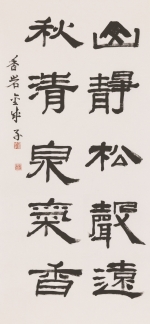 山靜松聲遠
秋清泉氣香
香岩金萍子